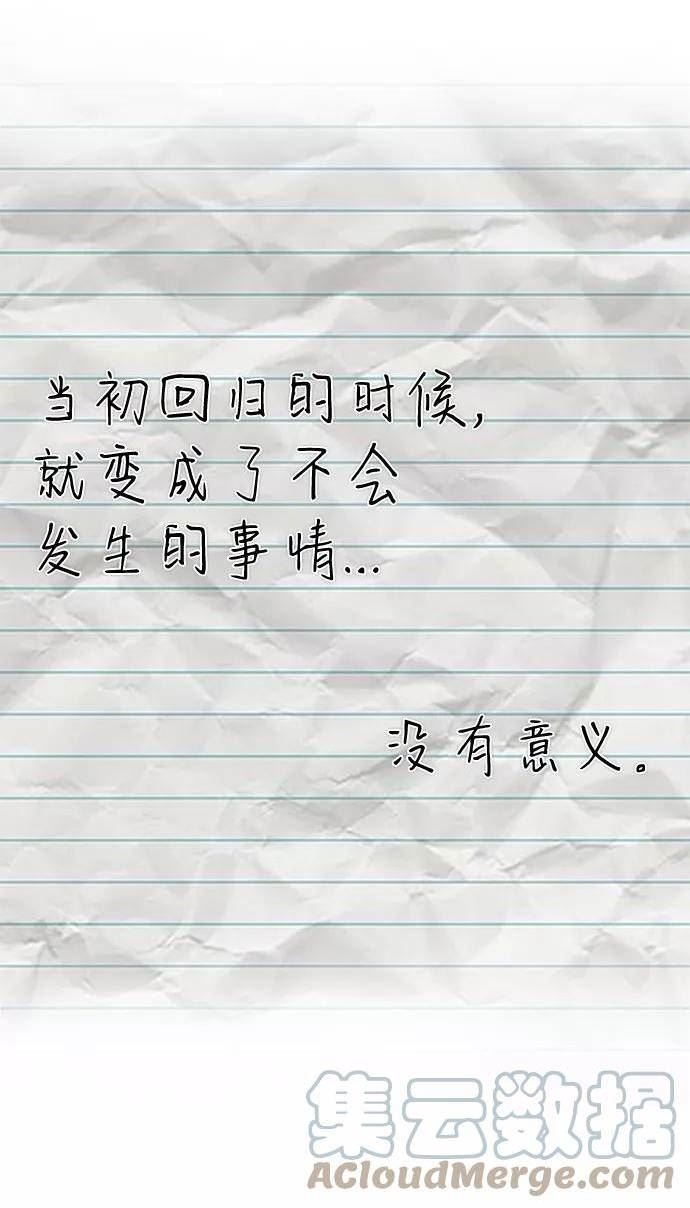 当初回归的时候,
就变成了不会
发生的事情...
没有意义。
集云数据
ACloudMerge.com